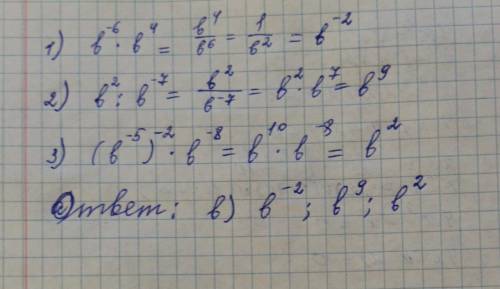 1) b⁻⁶ · b⁴ = b⁴/b⁶ = 1/b² = b⁻²
2) b² : b⁻⁷ = b²/b⁻⁷ = b² · b⁷ = b⁹
3) (b⁻⁵)⁻² · b⁻⁸ = b¹⁰ · b⁻⁸ = b²
Ответ: в) b⁻²; b⁹; b²